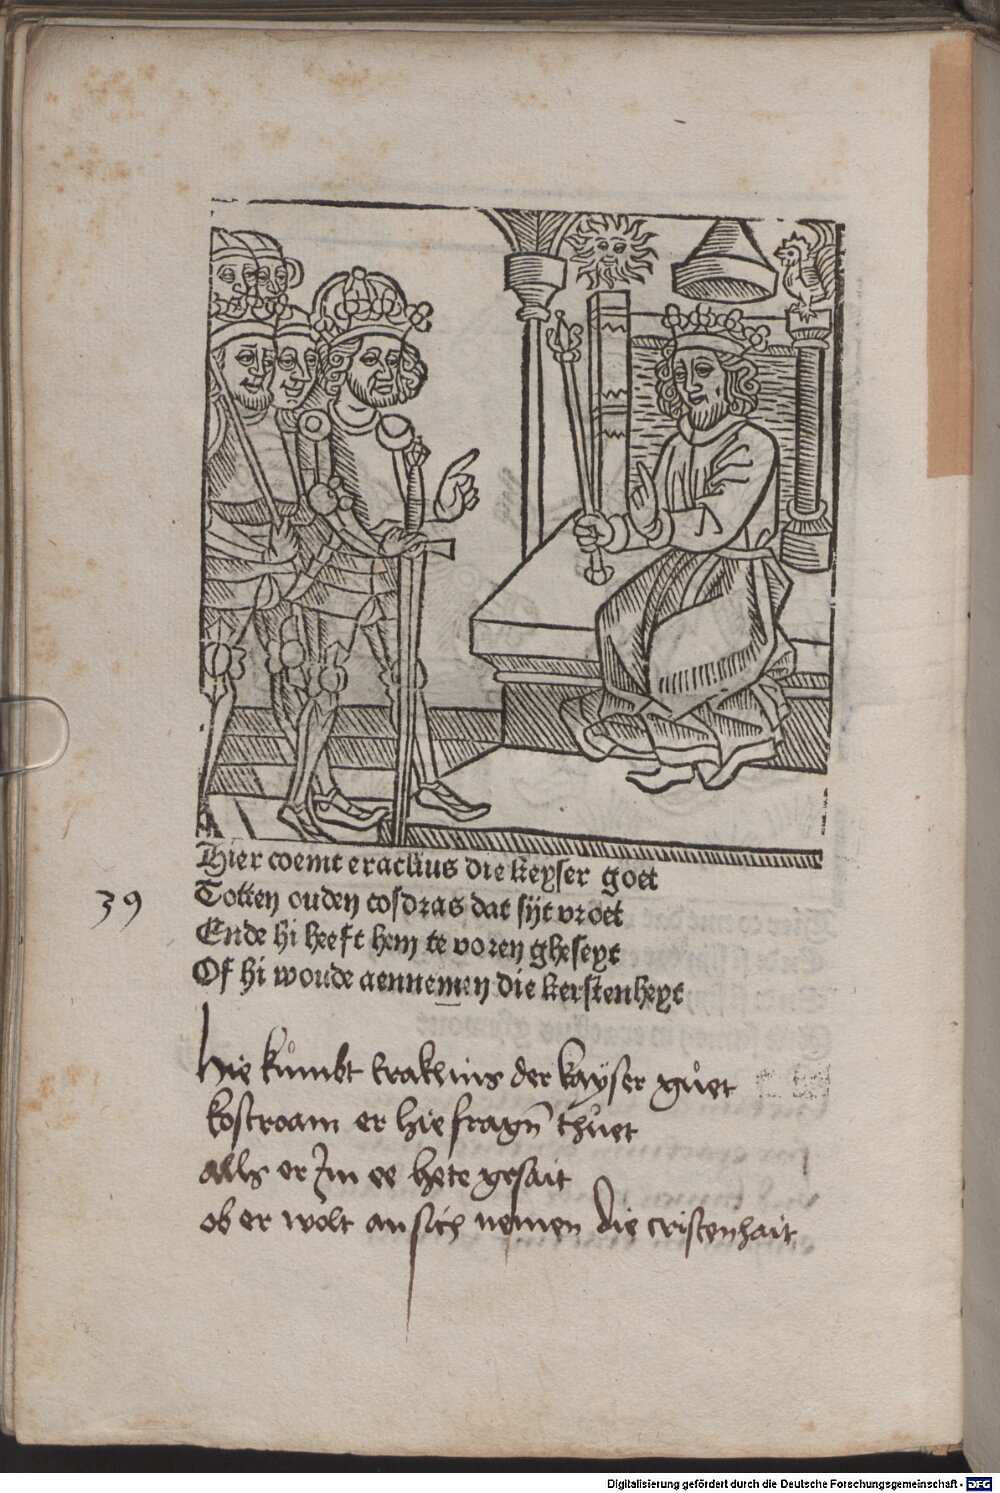 Hier coemt eraclius die keyser goet
Totten ouden cosdras dat sijt vroet
39
Ende hi heeft hem te voren gheseyt
Of hi woude aennemen die kerstenheyt
Hie kůmbt Eraklius der kayser gůet
kostroam er hie fragn̄ thůet
alls er Im ee hete gesait
ob er wolt an sich nemen die cristenhait
Digitalisierung gefördert durch die Deutsche Forschungsgemeinschaft - DFG